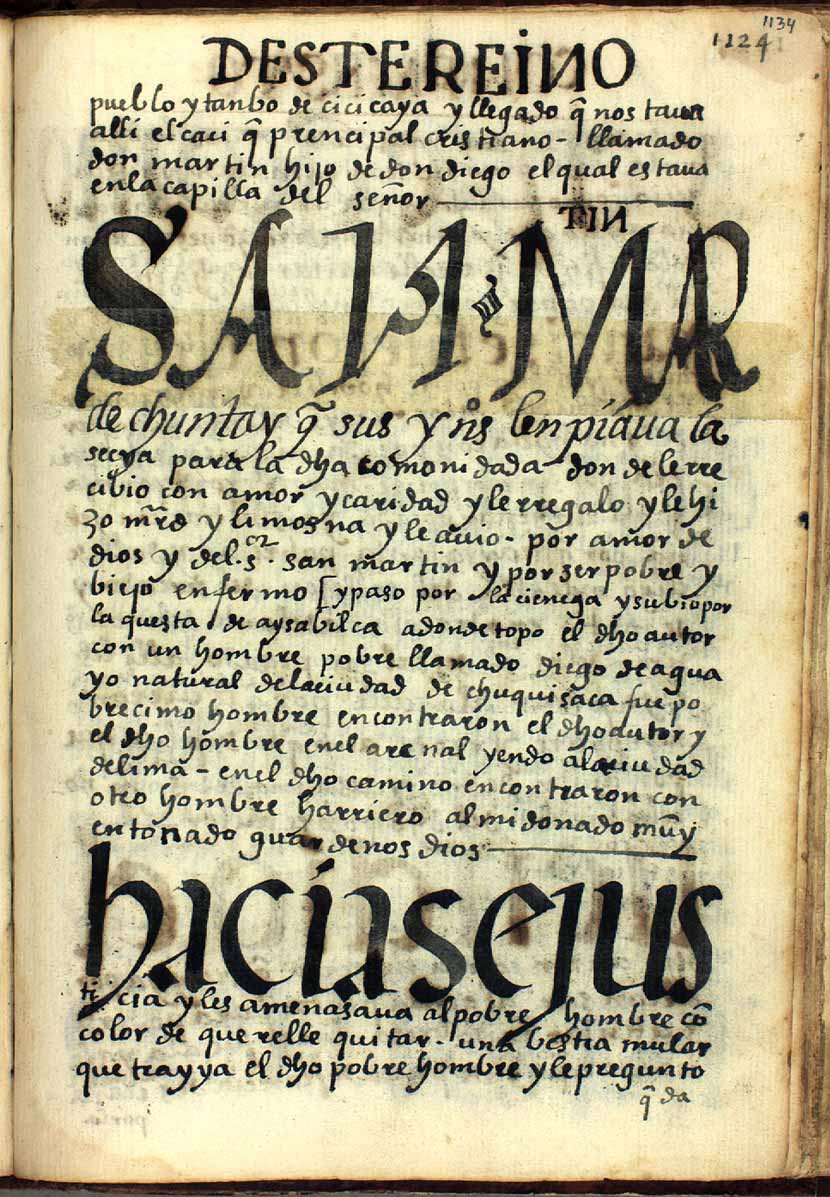 1134
1124
DESTEREINO
pueblo y tanbo de cicicaya y llegado q̃ nos taua
alli el caci q̃ prencipal cristiano - llamado
don martin hijo de don diego el qual estaua
en la capilla del señor
TIN
SAN MAR
de chuntay q̃ sus ynº̃s lenpiaua la
secya para la dha comonidada - don de le rre
cibio con amor y caridad y le rregalo y le hi
zo mr̃d y limosna y le auio - por amor de
dios y del. sor. san martin y por ser pobre y
biejo enfermo [y paso por la cienega y subio por
la questa de aysabilca adonde topo el dho autor
con un hombre pobre llamado diego de agua
yo natural de la ciudad de chuquisaca fue po
brecimo hombre encontraron el dho autor y
el dho hombre en el arenal yendo a la ciudad
de lima - en el dho camino encontraron con
otro hombre harriero almidonado muy
entonado guardenos dios
hacíasejus
ticia y les amenasaua al pobre hombre cõ
color de que relle quitar - una bestia mular
que trayya el dho pobre hombre y le pregunto
q̃ da